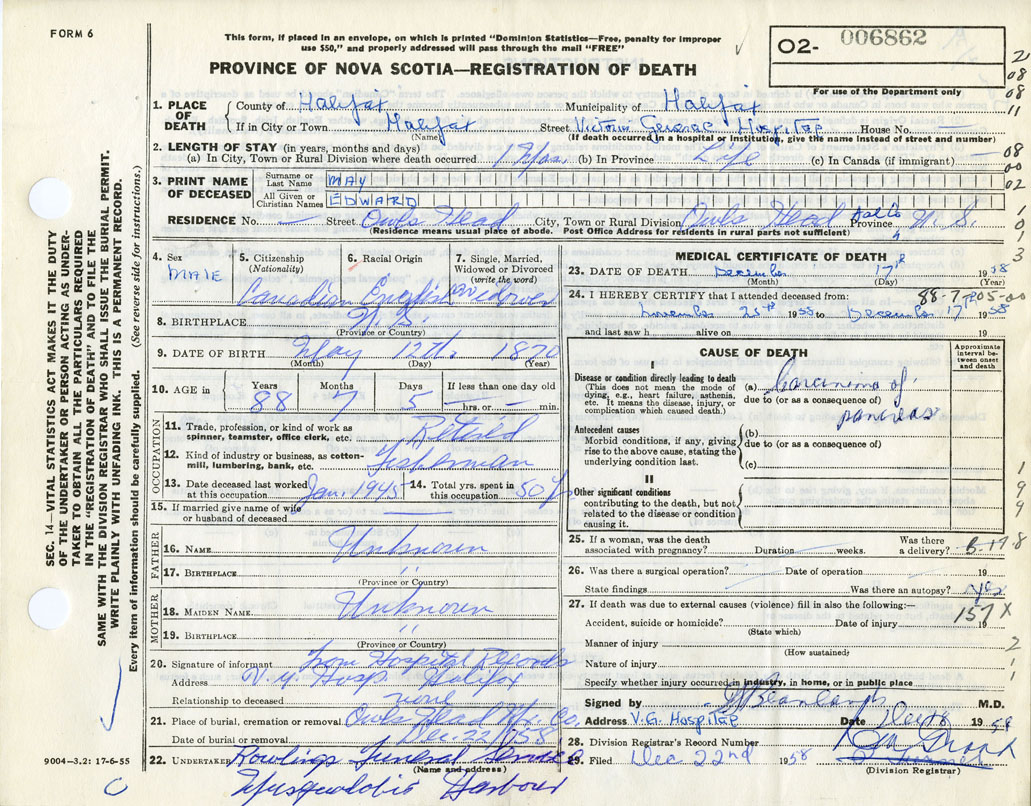 FORM 6
This form, if placed in an envelope, on which is printed "Dominion Statistics—Free, penalty for improper
use $50," and properly addressed will pass through the mail "FREE"
O2- 006862
For use of the Department only
PROVINCE OF NOVA SCOTIA—REGISTRATION OF DEATH
1. PLACE OF DEATH
County of Halifax Municipality of Halifax
If in City or Town Halifax Street Victoria General Hospital House No. —
(Name) (If death occurred in a hospital or institution, give the name instead of street and number)
2. LENGTH OF STAY (in years, months and days)
(a) In City, Town or Rural Division where death occurred (b) In Province Life (c) In Canada (if immigrant) —
3. PRINT NAME OF DECEASED
Surname or Last Name MAY
All Given or Christian Names EDWARD
RESIDENCE No. — Street Owls Head City, Town or Rural Division Owls Head Province N.S.
(Residence means usual place of abode. Post Office Address for residents in rural parts not sufficient)
4. Sex MALE
5. Citizenship (Nationality) Canadian
6. Racial Origin English
7. Single, Married, Widowed or Divorced (write the word) Widower
8. BIRTHPLACE N.S.
(Province or Country)
9. DATE OF BIRTH May 12th 1870
(Month) (Day) (Year)
10. AGE in Years 88 Months 7 Days 5 If less than one day old hrs. or min.
OCCUPATION
11. Trade, profession, or kind of work as spinner, teamster, office clerk, etc. Retired
12. Kind of industry or business, as cotton-mill, lumbering, bank, etc. Fisherman
13. Date deceased last worked at this occupation Jan. 1945
14. Total yrs. spent in this occupation 50 yrs
15. If married give name of wife or husband of deceased —
FATHER
16. NAME Unknown
17. BIRTHPLACE "
(Province or Country)
MOTHER
18. MAIDEN NAME Unknown
19. BIRTHPLACE "
(Province or Country)
20. Signature of informant From Hospital Records
Address V.G. Hosp. Halifax
Relationship to deceased none
21. Place of burial, cremation or removal Owls Head Hx. Co.
Date of burial or removal Dec. 22/58
22. UNDERTAKER Rowlings Funeral Service
(Name and address)
Musquodobit Harbour
9004—3.2: 17-6-55
MEDICAL CERTIFICATE OF DEATH
23. DATE OF DEATH December 17th 1958
(Month) (Day) (Year)
24. I HEREBY CERTIFY that I attended deceased from:
November 25th 1958 to December 17th 1958
and last saw h alive on 19
CAUSE OF DEATH
Approximate interval between onset and death
I
Disease or condition directly leading to death
(This does not mean the mode of dying, e.g., heart failure, asthenia, etc. It means the disease, injury, or complication which caused death.)
(a) Carcinoma of
due to (or as a consequence of)
pancreas
Antecedent causes
Morbid conditions, if any, giving rise to the above cause, stating the underlying condition last.
(b)
due to (or as a consequence of)
(c)
II
Other significant conditions
contributing to the death, but not related to the disease or condition causing it.
25. If a woman, was the death associated with pregnancy? Duration weeks. Was there a delivery?
26. Was there a surgical operation? Date of operation 19
State findings Was there an autopsy? Yes
27. If death was due to external causes (violence) fill in also the following:—
Accident, suicide or homicide? Date of injury 19
157 X
(State which)
Manner of injury
(How sustained)
Nature of injury
Specify whether injury occurred in industry, in home, or in public place
Signed by M.D.
Address V.G. Hospital Date Dec 18 1958
28. Division Registrar's Record Number
29. Filed Dec 22nd 1958
(Division Registrar)
SEC. 14—VITAL STATISTICS ACT MAKES IT THE DUTY
OF THE UNDERTAKER OR PERSON ACTING AS UNDER-
TAKER TO OBTAIN ALL THE PARTICULARS REQUIRED
IN THE "REGISTRATION OF DEATH" AND TO FILE THE
SAME WITH THE DIVISION REGISTRAR WHO SHALL ISSUE THE BURIAL PERMIT.
WRITE PLAINLY WITH UNFADING INK. THIS IS A PERMANENT RECORD.
Every item of information should be carefully supplied. (See reverse side for instructions.)